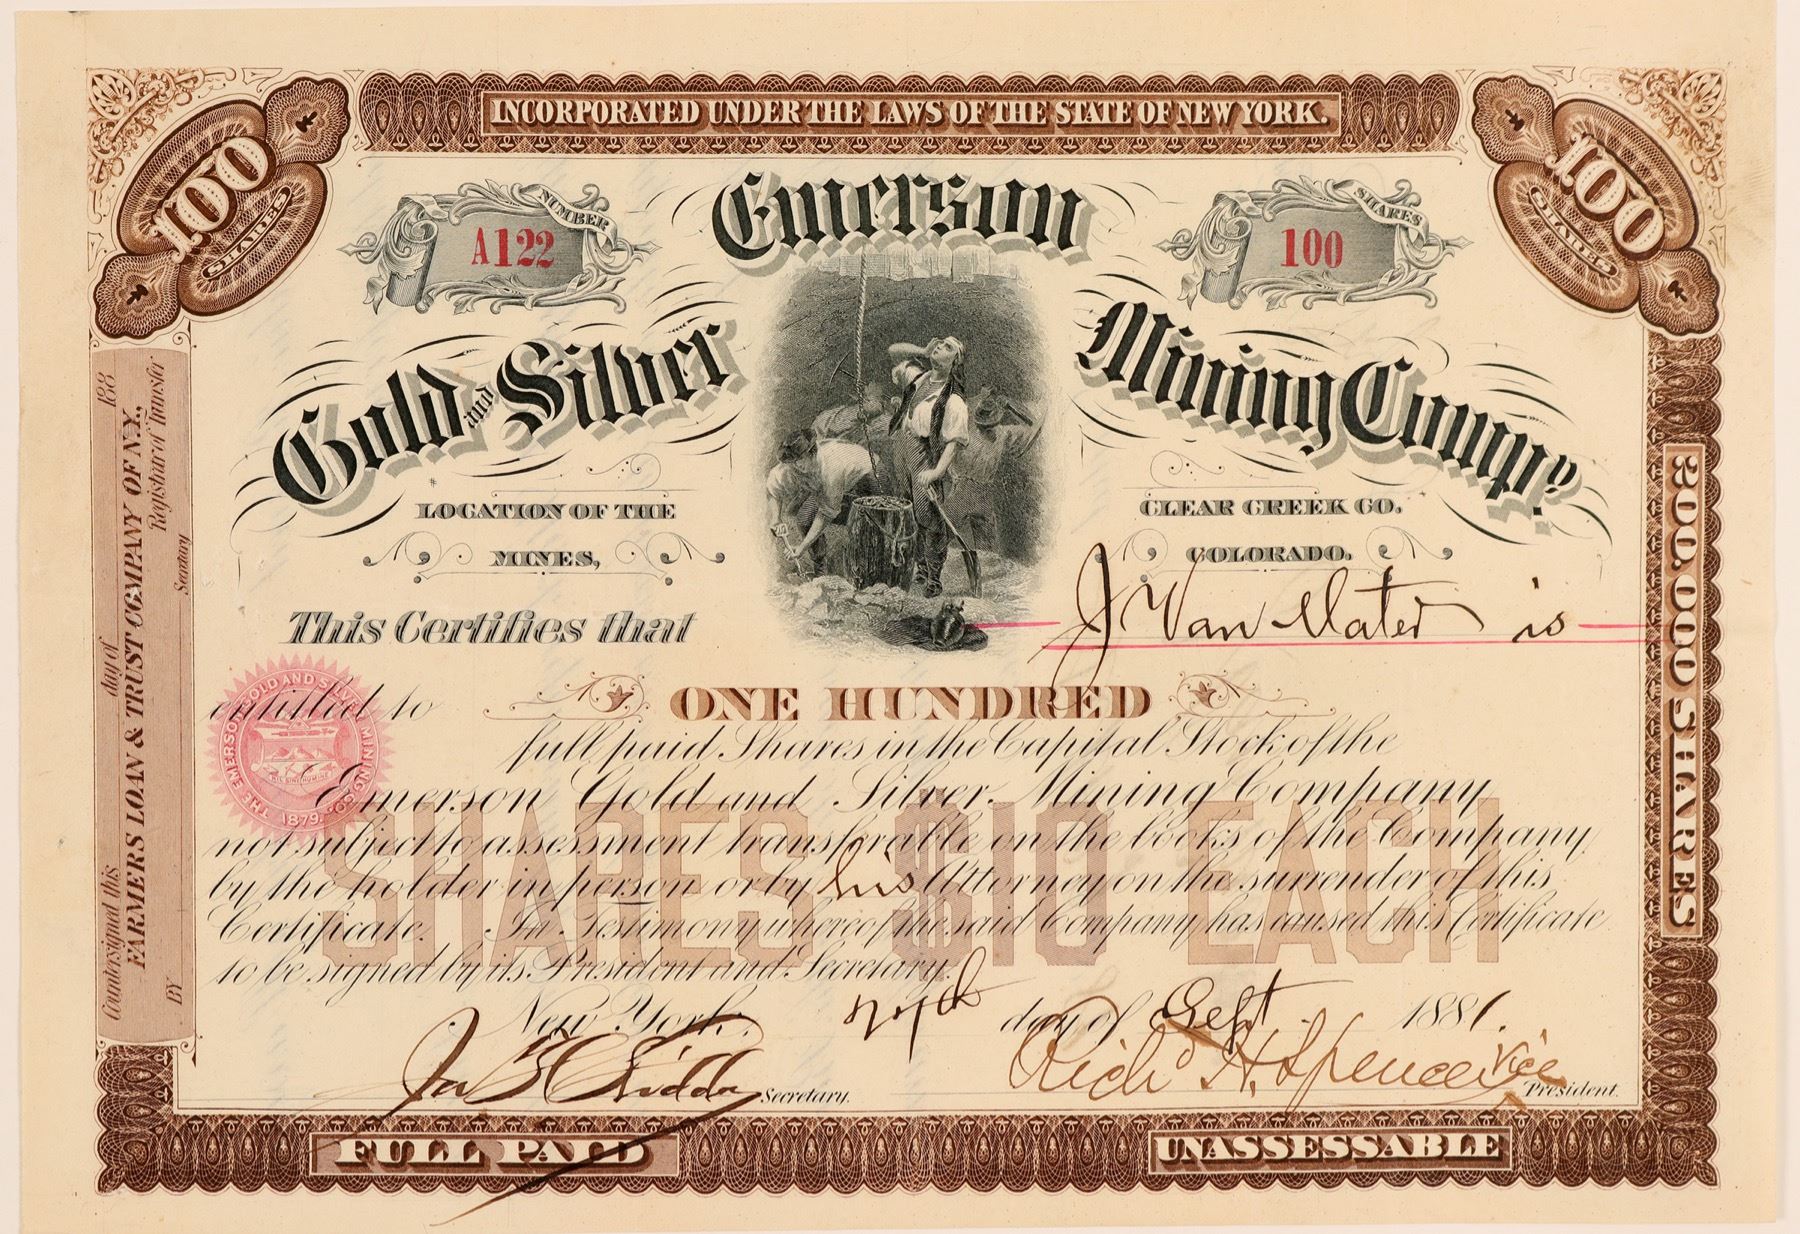 INCORPORATED UNDER THE LAWS OF THE STATE OF NEW YORK.
100 SHARES
100 SHARES
NUMBER
A122
SHARES
100
Emerson
Gold and Silver Mining Compy.
LOCATION OF THE MINES,
CLEAR CREEK CO. COLORADO.
This Certifies that J Van Slater is
entitled to ONE HUNDRED
full paid Shares in the Capital Stock of the
Emerson Gold and Silver Mining Company
not subject to assessment transferable on the books of the Company
by the holder in person or by his Attorney on the surrender of this
Certificate. In Testimony whereof the said Company has caused this Certificate
to be signed by its President and Secretary.
SHARES $10 EACH
New York, day of Sept. 1881.
Secretary.
Rich'd H. Spencer Vice President.
FULL PAID
UNASSESSABLE
Countersigned this day of 188
FARMERS LOAN & TRUST COMPANY OF N.Y.,
Registrar of Transfer
BY Secretary
200,000 SHARES
THE EMERSON GOLD AND SILVER MINING CO.
1879.